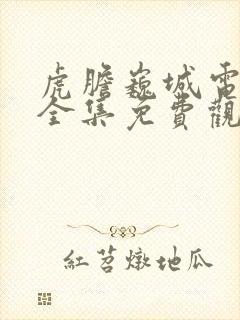 虎膽巍城電
全集免費觀
紅苕燉地瓜